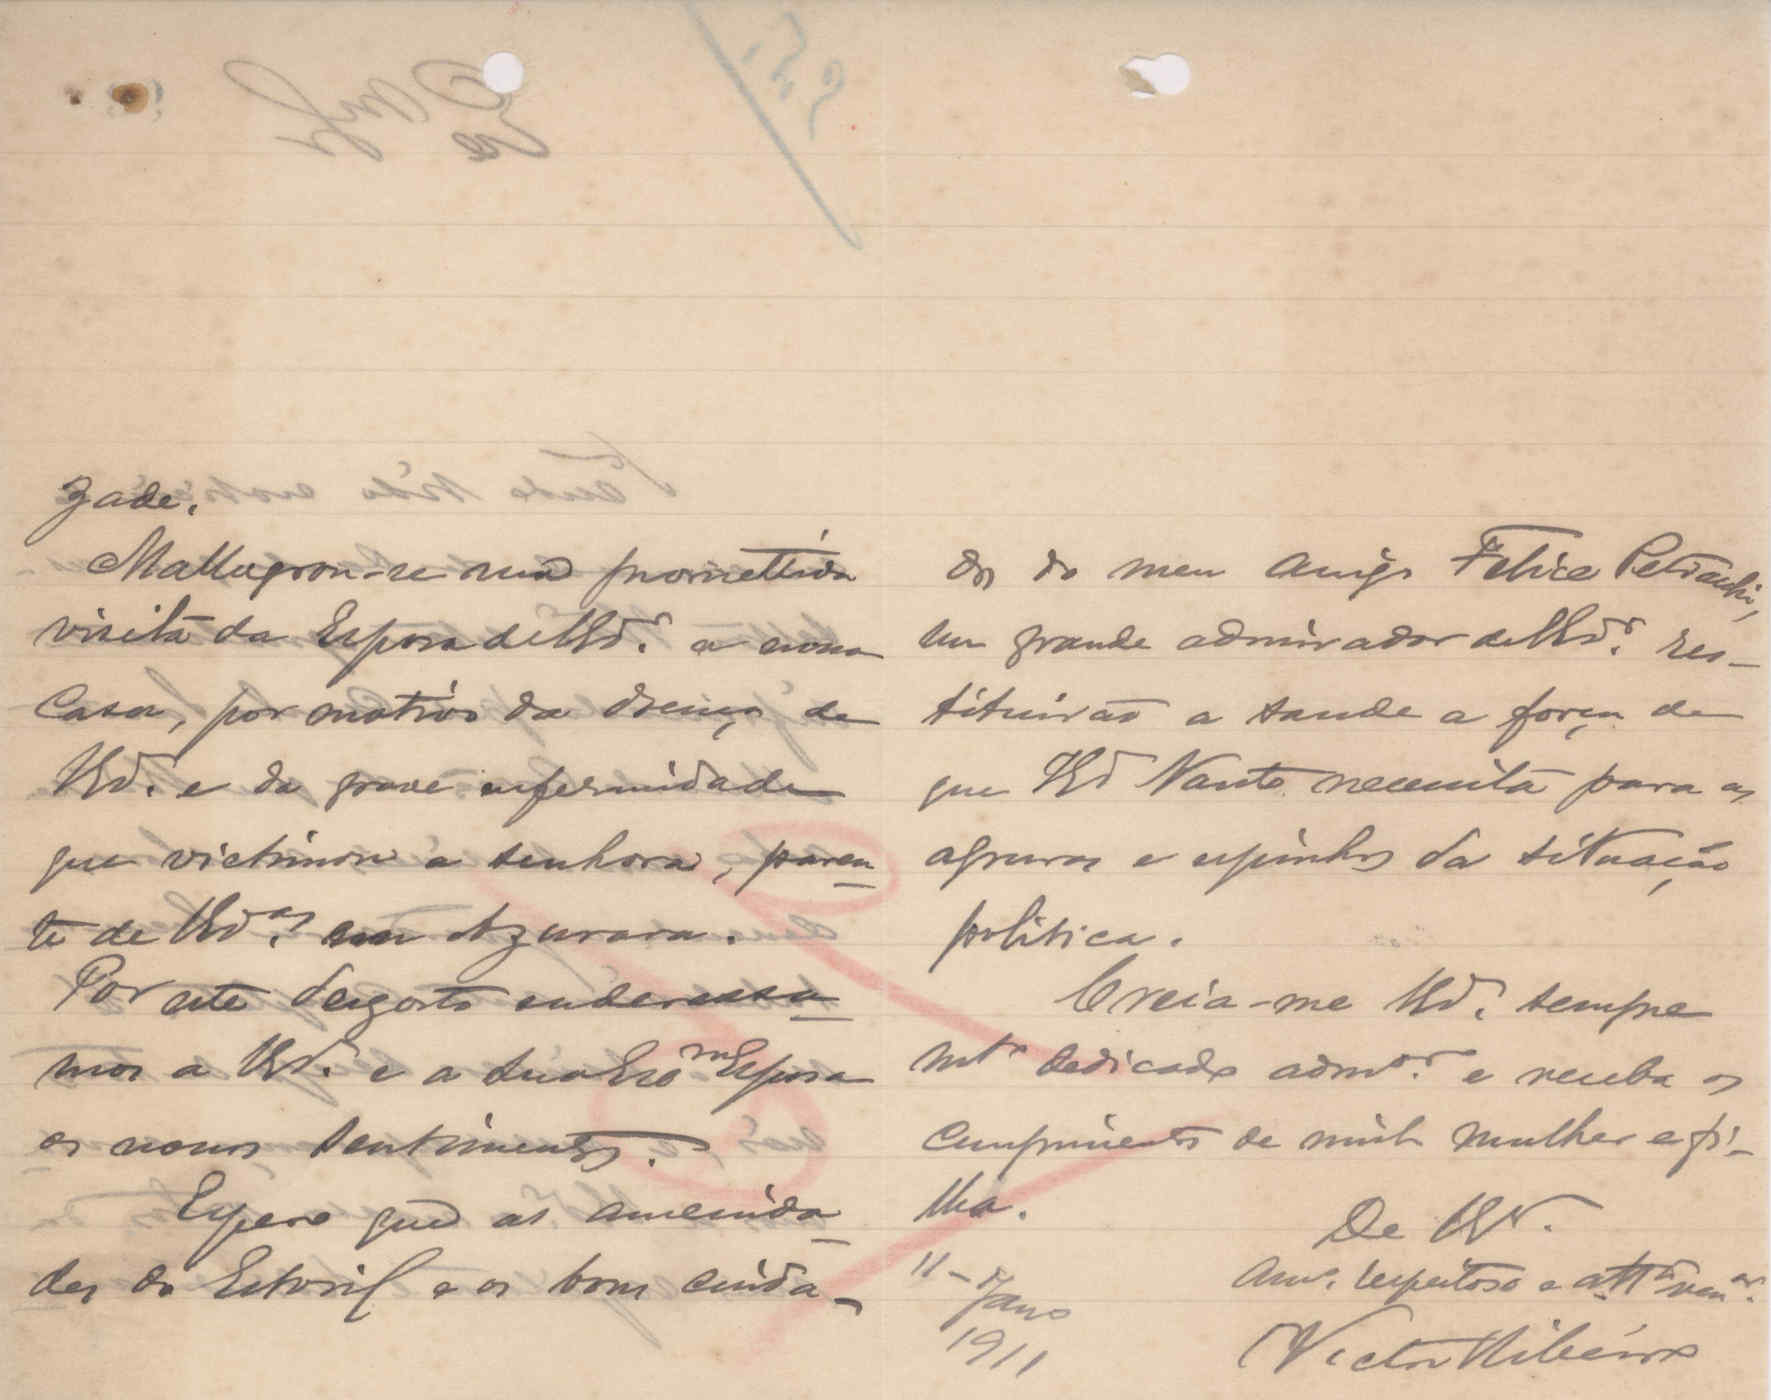 zade.
Mallogrou-se uma promettida
visita da Esposa de V. Ex.ª a nossa
casa, por motivo da doença de
V. Ex.ª e da grave enfermidade
que victimou a senhora, paren-
te de V. Ex.as em Azurara.
Por este desgosto enderessa-
mos a V. Ex.ª e a sua Exmª Esposa
os nossos sentimentos.
Espero que as amenida-
des do Estoril e os bons cuida-
dos do meu amigo Felice
um grande admirador de V. Ex.ª res-
tituirão a saude e força de
que V. Ex.ª tanto necessita para as
agruras e espinhos da situação
politica.
Creia-me V. Ex.ª sempre
mtº dedicado admor. e receba os
cumprimentos de minha mulher e fi-
lha.
De V. Ex.ª
Amº. respeitoso e attº venor.
Victor Ribeiro
11-Jano
1911